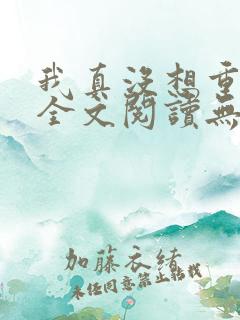 我真没想重
全文閱讀無
加藤衣緒
未经同意禁止转载